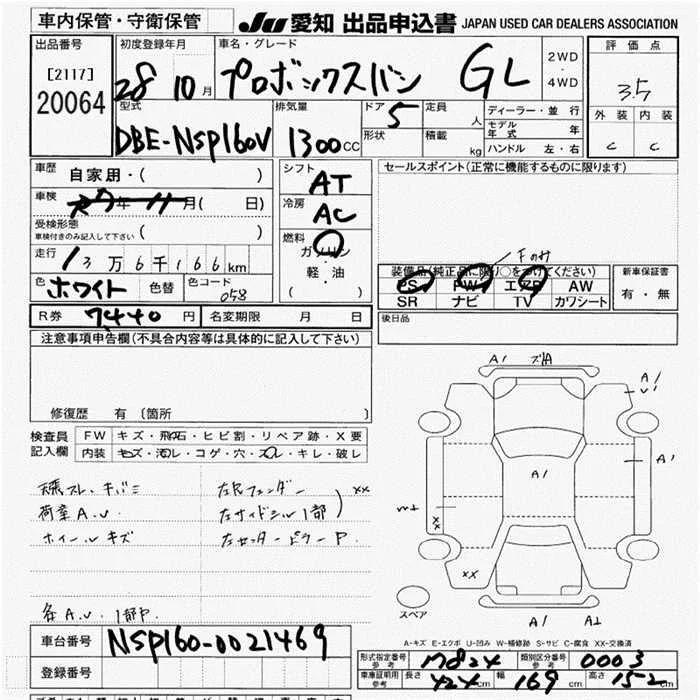 車内保管・守衛保管
JU 愛知 出品申込書 JAPAN USED CAR DEALERS ASSOCIATION
出品番号
[2117]
20064
初度登録年月
28 10月
車名・グレード
プロボックスバン GL
2WD
・
4WD
評価点
3.5
外装 内装
C C
型式
DBE-NSP160V
排気量
1300CC
ドア 5
形状
定員 人
積載 kg
ディーラー・並行
モデル年式 年
ハンドル 左・右
車歴 自家用・( )
車検 R7年 11月( 日)
受検形態
車検付きのみ記入して下さい ( )
走行 13万6千166km
色 ホワイト 色替 色コード 058
シフト AT
冷房 AC
燃料 ガソリン
軽・油
( )
セールスポイント(正常に機能するものに限ります)
Fのみ
装備品(純正品に限り○をつけてください)
PS PW エアB AW
SR ナビ TV カワシート
新車保証書
有・無
R券 7440円 名変期限 月 日
後日品
注意事項申告欄(不具合内容等は具体的に記入して下さい)
修復歴 有 (箇所 )
検査員記入欄
FW キズ・飛石・ヒビ割・リペア跡・X要
内装 キズ・汚レ・コゲ・穴・スレ・キレ・破レ
天張スレ・キバミ
荷室A.U.
ホイールキズ
左Rフェンダー
左サイドシル1部
××
左センターピラーP.
各A.U. 1部P.
A1
A1
A1
A1
××
××
A1
スペア
A-キズ E-エクボ U-凹み W-補修跡 S-サビ C-腐食 XX-交換済
車台番号 NSP160-0021469
登録番号
形式指定番号 参考 17824
類別区分番号 参考 0003
車庫証明用 参考 長さ 424cm 幅 169cm 高さ 152cm